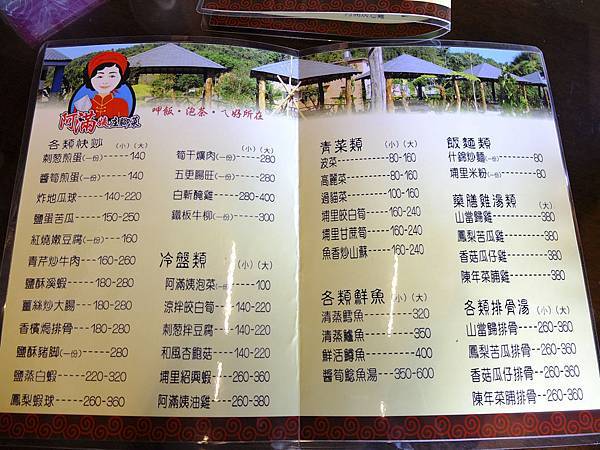 阿滿
呷飯・泡茶・ㄟ好所在
各類快炒 (小)(大)
刺葱煎蛋(一份)-----140
醬筍煎蛋(一份)-----140
炸地瓜球------140-220
鹽蛋苦瓜-----150-250
紅燒嫩豆腐(一份)---160
青芹炒牛肉---160-260
鹽酥溪蝦----180-280
薑絲炒大腸---180-280
香檳焗排骨---180-280
鹽酥豬腳(一份)------280
鹽蒸白蝦-----220-320
鳳梨蝦球----260-360
(小)(大)
筍干爌肉(一份)-----280
五更腸旺(一份)-----280
白斬醃雞----280-400
鐵板牛柳(一份)-----300
冷盤類 (小)(大)
阿滿姨泡菜(一份)---100
涼拌皎白筍---140-220
刺葱拌豆腐---140-220
和風杏鮑菇---140-220
埔里紹興蝦---260-360
阿滿姨油雞---260-380
青菜類 (小)(大)
菠菜---------80-160
高麗菜-------80-160
過貓菜------100-160
埔里皎白筍---160-240
埔里甘蔗筍---160-240
魚香炒山蘇---160-240
各類鮮魚 (小)(大)
清蒸鱈魚----------320
清蒸鱸魚----------350
鮮活鱒魚----------400
醬筍鯰魚湯---350-600
飯麵類
什錦炒麵(一份)------80
埔里米粉(一份)------80
藥膳雞湯類 (大)
山當歸雞----------380
鳳梨苦瓜雞--------380
香菇瓜仔雞--------380
陳年菜脯雞--------380
各類排骨湯 (小)(大)
山當歸排骨---260-360
鳳梨苦瓜排骨--260-360
香菇瓜仔排骨--260-360
陳年菜脯排骨--260-360